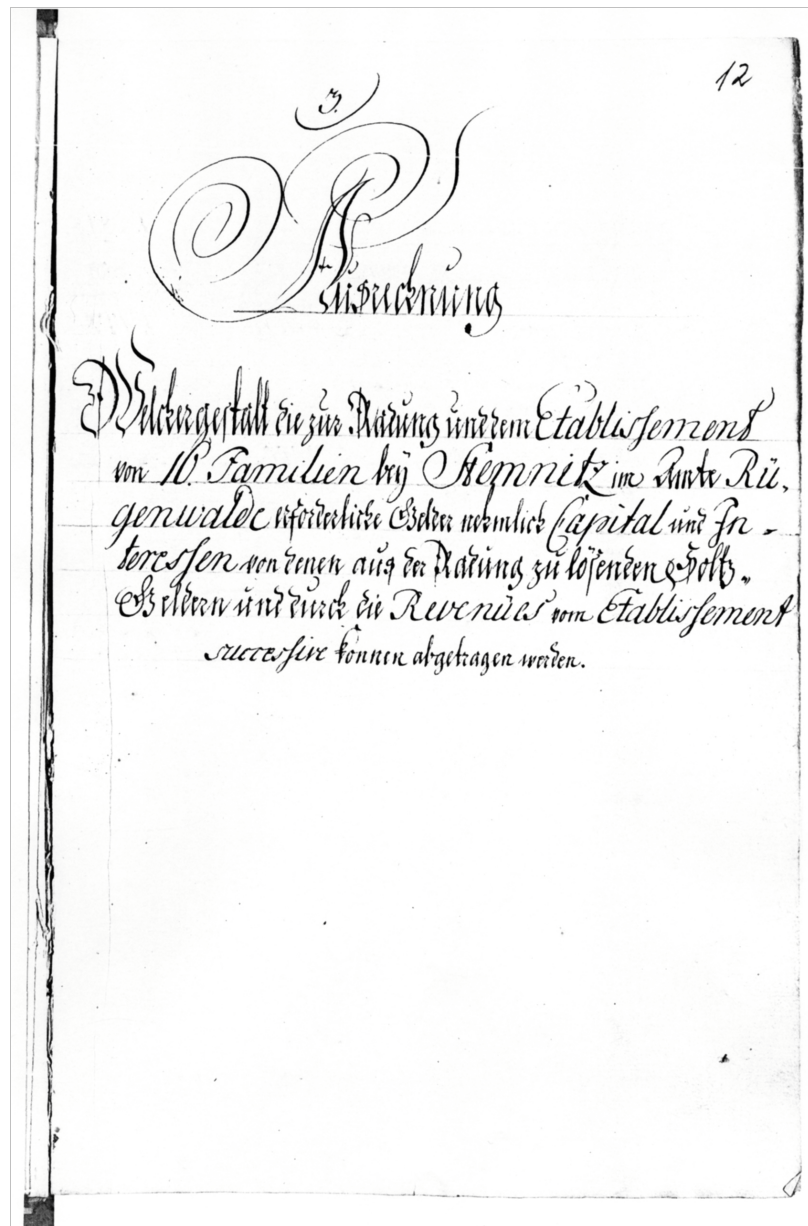 12
3.
Ausrechnung
Welchergestalt die zur Radung und dem Etablissement
von 16. Familien bey Stemnitz im Amte Rü-
genwalde erforderliche Gelder nehmlich Capital und In-
teressen von denen aus der Radung zu lösenden Holtz-
Geldern und durch die Revenües vom Etablissement
successive können abgetragen werden.